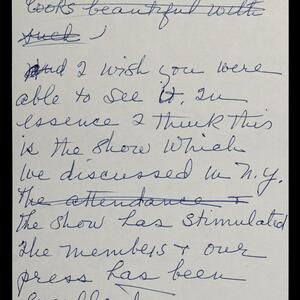 looks beautiful with
such
And I wish you were
able to see it. In
essence I think this
is the show which
we discussed in N.Y.
The attendance +
The show has stimulated
the members + our
press has been